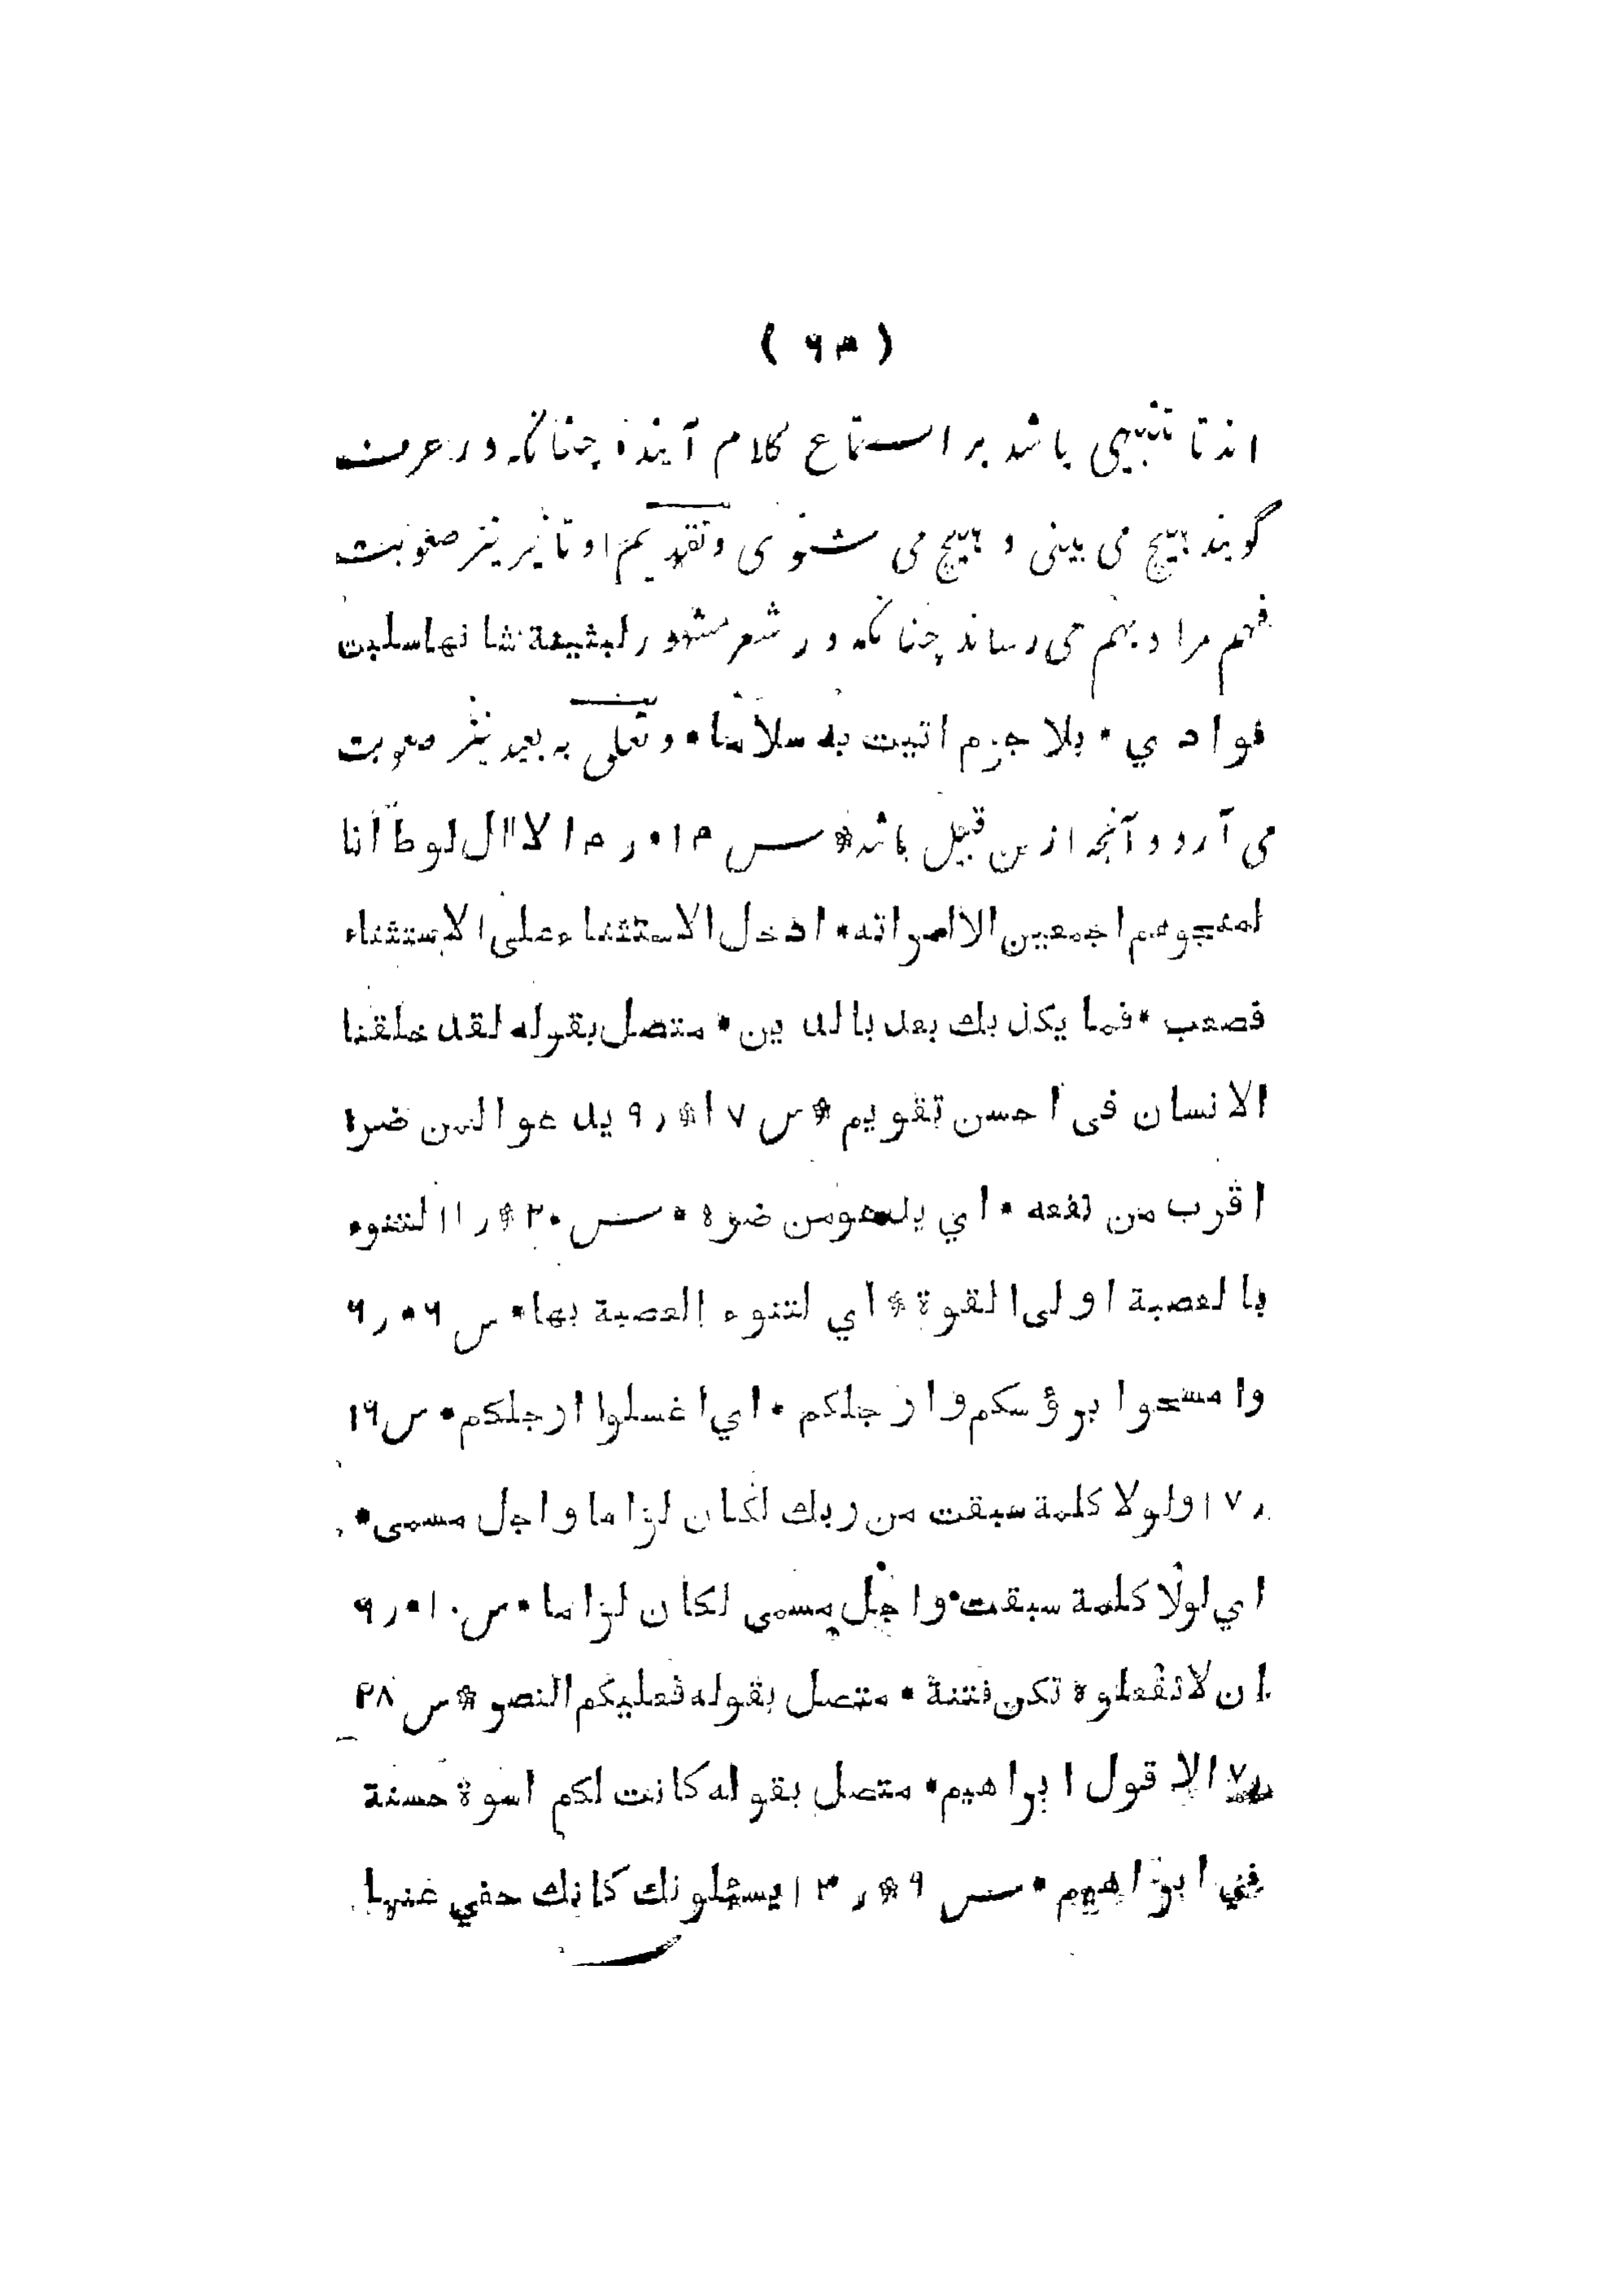 ( ۶۴ )
اند تا تنبیهی باشد بر استماع کلام آینده چنانکه در عرف
گویند هیچ می بینی و هیچ می شنوی وتقدیم او تاخیر نیز صعوبت
فهم مراد بهم می رساند چنانکه در شعر مشهور لبثينة شانها سلبت
فوادي * بلا جرم اتيت به سلاما * وتعلق به بعید نیز صعوبت
می آرد و آنچه ازین قبیل باشد * س ۱۴ * ر ۴ الا ال لوط انا
لمنجوهم اجمعين الا امراته * ادخل الاستثناء على الاستثناء
فصعب * فما يكذبك بعد بالدين * متصل بقوله لقد خلقنا
الانسان في احسن تقويم * س ۱۷ * ر ۹ يدعوا لمن ضره
اقرب من نفعه * اي يدعو من ضره * س ۲۰ * ر ۱۱ لتنوء
بالعصبة اولى القوة * اي لتنوء العصبة بها * س ۶ * ر ۶
وامسحوا برؤسكم وارجلكم * اي اغسلوا ارجلكم * س ۱۶
ر ۱۷ ولولا كلمة سبقت من ربك لكان لزاما واجل مسمى *
اي لولا كلمة سبقت * واجل مسمى لكان لزاما * س ۱۰ * ر ۶
ان لا تفعلوه تكن فتنة * متصل بقوله فعليكم النصر * س ۲۸
ر ۷ الا قول ابراهيم * متصل بقوله كانت لكم اسوة حسنة
في ابراهيم * س ۹ * ر ۱۳ يسئلونك كانك حفي عنها